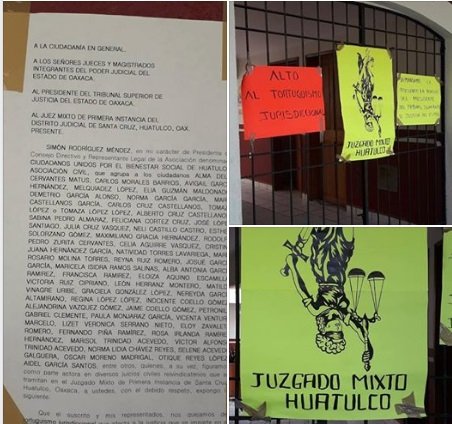 A LA CIUDADANÍA EN GENERAL.
A LOS SEÑORES JUECES Y MAGISTRADOS
INTEGRANTES DEL PODER JUDICIAL DEL
ESTADO DE OAXACA.
AL PRESIDENTE DEL TRIBUNAL SUPERIOR DE
JUSTICIA DEL ESTADO DE OAXACA.
AL JUEZ MIXTO DE PRIMERA INSTANCIA DEL
DISTRITO JUDICIAL DE SANTA CRUZ, HUATULCO, OAX.
PRESENTE.
SIMÓN RODRÍGUEZ MÉNDEZ, en mi carácter de Presidente
Consejo Directivo y Representante Legal de la Asociación denomina
CIUDADANOS UNIDOS POR EL BIENESTAR SOCIAL DE HUATULCO
ASOCIACIÓN CIVIL, que agrupa a los ciudadanos ALMA DEL
CERVANTES MATUS, CARLOS MORALES BARRIOS, AVIGAIL GARC
HERNÁNDEZ, MELQUIADEZ LÓPEZ, ELIA GUZMÁN MALDONAD
DEMETRIO GARCÍA ALONSO, NORMA GARCÍA GARCÍA, MAR
CASTELLANOS GARCÍA, CARLOS CRUZ CASTELLANOS, TOMA
LÓPEZ o TOMAZA LÓPEZ LÓPEZ, ALBERTO CRUZ CASTELLANO
SABINA PEDRO ALMARAZ, FELICIANA CORTEZ CRUZ, JOSÉ LÓP
SANTIAGO, JULIA CRUZ VASQUEZ, NELI CASTILLO CASTRO, ESTHE
SOLORZANO GÓMEZ, MAXIMALIANO GRACIA HERNÁNDEZ, RODOLF
PEDRO ZURITA CERVANTES, CELIA AGUIRRE VASQUEZ, CRISTIN
JUANA HERNÁNDEZ GARCÍA, NATIVIDAD TORRES LAVARIEGA, MAR
ROSARIO MOLINA TORRES, REYNA RUIZ ROMERO, JOSUÉ GARC
GARCÍA, MARICELA ISIDRA RAMOS SALINAS, ALBA ANTONIA GARC
RAMÍREZ, FRANCISCA RAMÍREZ, ELOIZA AQUINO ESCAMILL
VICTORIA RUIZ CIPRIANO, LEÓN HERRANZ MONTERO, MATILD
VINAGRE URIBE, GRACIELA GONZÁLEZ LÓPEZ, NEREYDA GARC
ALTAMIRANO, REGINA LÓPEZ LÓPEZ, INOCENTE COELLO GÓME
ALEJANDRINA VAZQUEZ GÓMEZ, JAIME COELLO GÓMEZ, PETRONIL
GABRIEL CLEMENTE, PAULA MONJARAZ GARCÍA, VICENTA VENTUR
MARCELO, LIZET VERONICA SERRANO NIETO, ELOY ZAVALET
ROMERO, FERNANDO PIÑA RAMÍREZ, ROSA IRLANDA RAMÍRE
HERNÁNDEZ, MARISOL TRINIDAD ACEVEDO, VÍCTOR ALFONS
TRINIDAD ACEVEDO, NORMA LIDIA CHÁVEZ REYES, SELENE ACEVED
GALGUERA, OSCAR MORENO MADRIGAL, OTIQUE REYES LÓPEZ
AIDEL GARCÍA SANTOS, entre otros, quienes, a su vez, figuramo
como parte actora en diversos juicios civiles reivindicatorios que
tramitan en el Juzgado Mixto de Primera Instancia de Santa Cruz
Huatulco, Oaxaca, a ustedes, con el debido respeto, expongo
siguiente:
Que el suscrito y mis representados, nos quejamos de
ALTO
AL TORTUGUISMO
JURISDICCIONAL
JUZGADO MIXTO
HUATULCO
DEL PRESIDENTE
JUZGADO MIXTO
HUATULCO